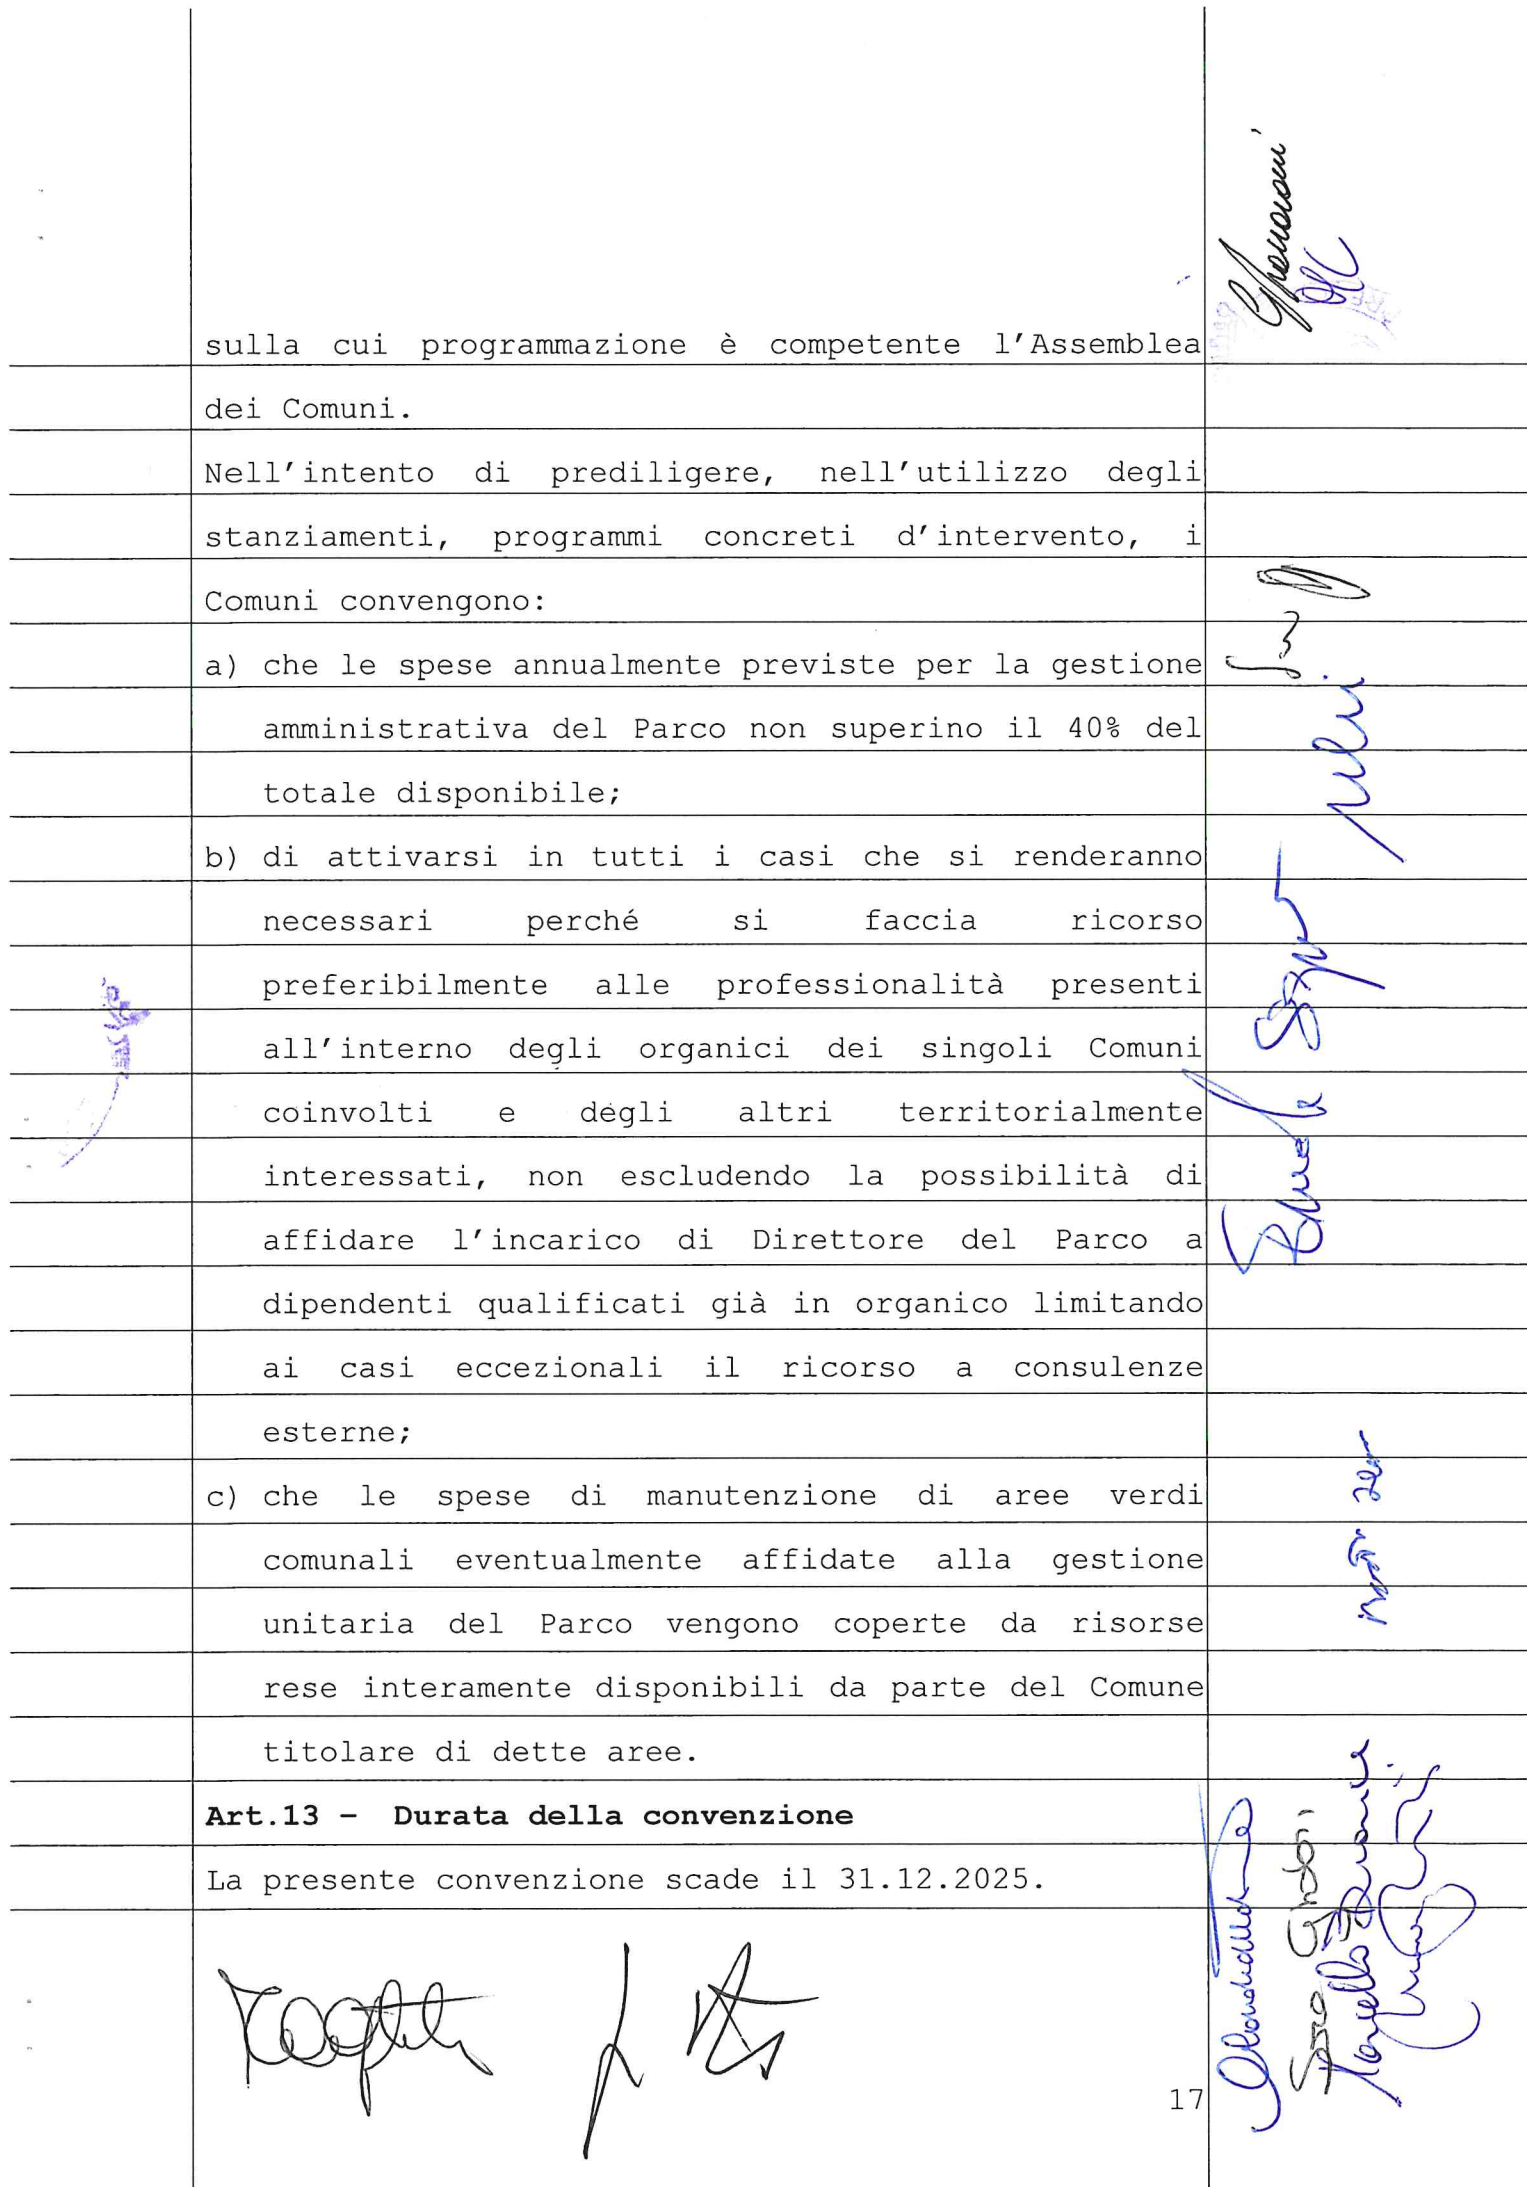 sulla cui programmazione è competente l'Assemblea
dei Comuni.
Nell'intento di prediligere, nell'utilizzo degli
stanziamenti, programmi concreti d'intervento, i
Comuni convengono:
a) che le spese annualmente previste per la gestione
amministrativa del Parco non superino il 40% del
totale disponibile;
b) di attivarsi in tutti i casi che si renderanno
necessari perché si faccia ricorso
preferibilmente alle professionalità presenti
all'interno degli organici dei singoli Comuni
coinvolti e degli altri territorialmente
interessati, non escludendo la possibilità di
affidare l'incarico di Direttore del Parco a
dipendenti qualificati già in organico limitando
ai casi eccezionali il ricorso a consulenze
esterne;
c) che le spese di manutenzione di aree verdi
comunali eventualmente affidate alla gestione
unitaria del Parco vengono coperte da risorse
rese interamente disponibili da parte del Comune
titolare di dette aree.
Art.13 - Durata della convenzione
La presente convenzione scade il 31.12.2025.
17